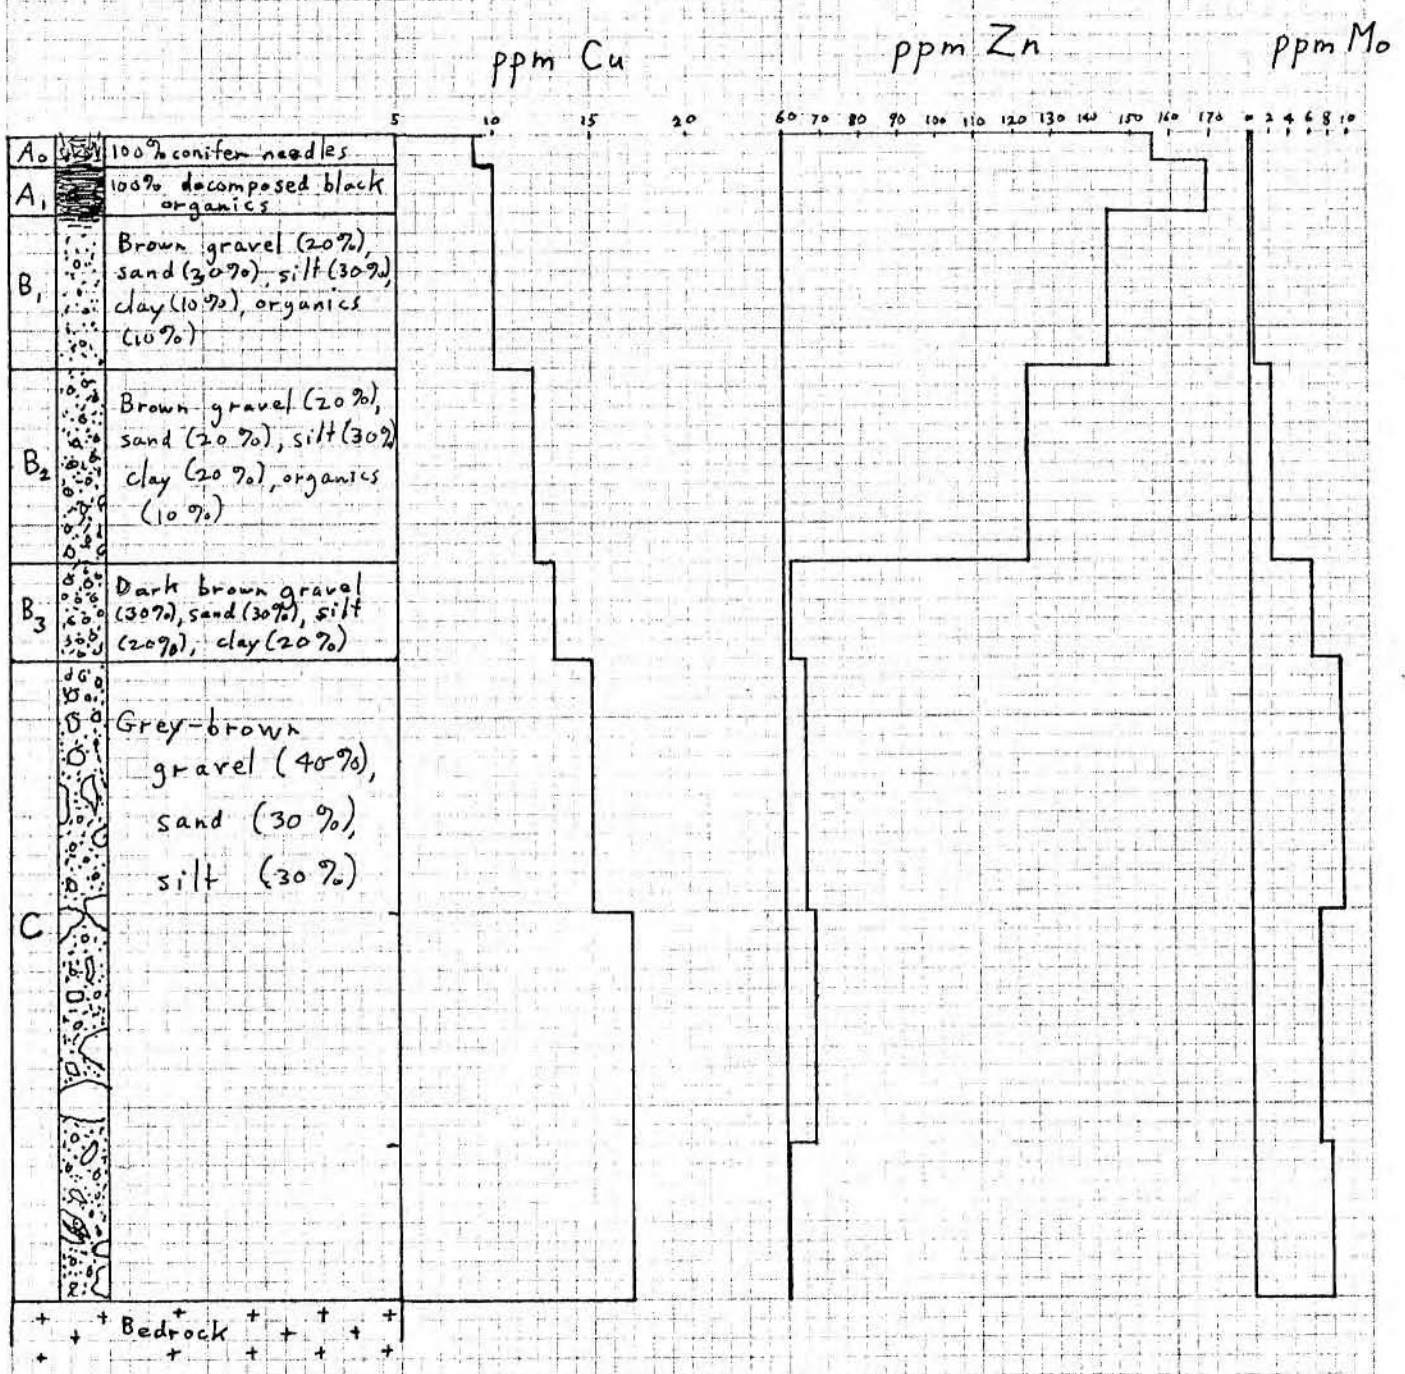 ppm Cu
ppm Zn
ppm Mo
5 10 15 20
60 70 80 90 100 110 120 130 140 150 160 170
0 2 4 6 8 10
A₀ 100% conifer needles
A₁ 100% decomposed black
organics
B₁
Brown gravel (20%),
sand (30%), silt (30%),
clay (10%), organics
(10%)
B₂
Brown gravel (20%),
sand (20%), silt (30%)
clay (20%), organics
(10%)
B₃
Dark brown gravel
(30%), sand (30%), silt
(20%), clay (20%)
C
Grey-brown
gravel (40%),
sand (30%),
silt (30%)
Bedrock